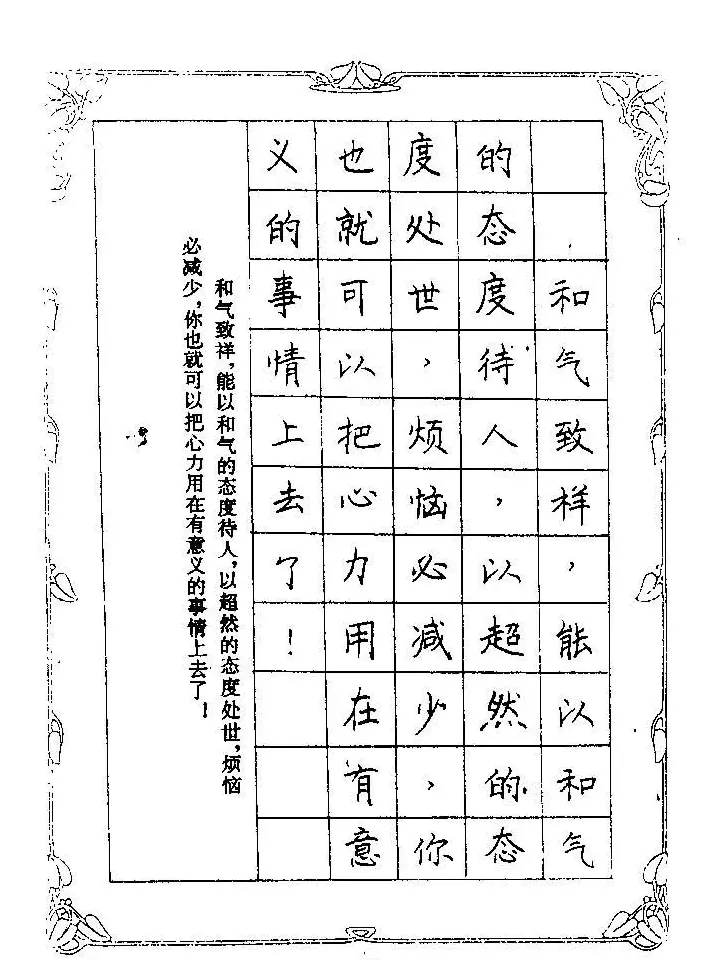 和气致祥，能以和气
的态度待人，以超然的态
度处世，烦恼必减少，你
也就可以把心力用在有意
义的事情上去了！
和气致祥，能以和气的态度待人，以超然的态度处世，烦恼
必减少，你也就可以把心力用在有意义的事情上去了！